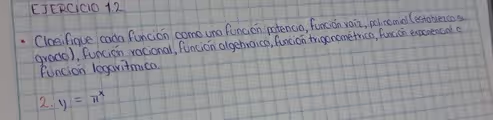 EJERCICIO 1.2
• Clasifique cada función como una función potencia, función raíz, polinomial (establezca su
grado), función racional, función algebraica, función trigonométrica, función exponencial o
función logarítmica.
2. y = π^x